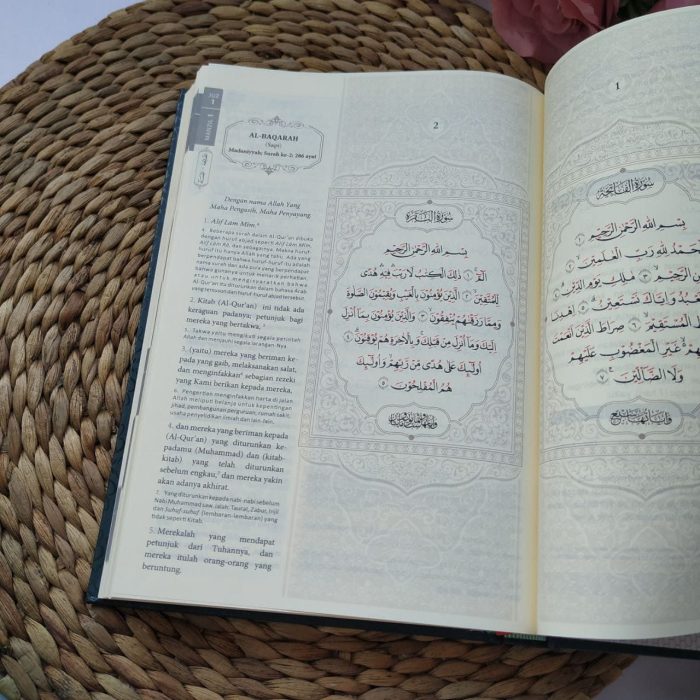 JUZ
1
MANZIL 1
AL-BAQARAH
(Sapi)
Madaniyyah; Surah ke-2: 286 ayat
Dengan nama Allah Yang
Maha Pengasih, Maha Penyayang.
1. Alif Lām Mīm.⁴
4. Beberapa surah dalam Al-Qur'an dibuka
dengan huruf abjad seperti Alif Lām Mīm,
Alif Lām Rā, dan sebagainya. Makna huruf-
huruf itu hanya Allah yang tahu. Ada yang
berpendapat bahwa huruf-huruf itu adalah
nama surah dan ada pula yang berpendapat
bahwa gunanya untuk menarik perhatian,
atau untuk mengisyaratkan bahwa
Al-Qur'an itu diturunkan dalam bahasa Arab
yang tersusun dari huruf-huruf abjad tersebut.
2. Kitab (Al-Qur'an) ini tidak ada
keraguan padanya; petunjuk bagi
mereka yang bertakwa,⁵
5. Takwa yaitu mengikuti segala perintah
Allah dan menjauhi segala larangan-Nya.
3. (yaitu) mereka yang beriman ke-
pada yang gaib, melaksanakan salat,
dan menginfakkan⁶ sebagian rezeki
yang Kami berikan kepada mereka,
6. Pengertian menginfakkan harta di jalan
Allah meliputi belanja untuk kepentingan
jihad, pembangunan perguruan, rumah sakit,
usaha penyelidikan ilmiah dan lain-lain.
4. dan mereka yang beriman kepada
(Al-Qur'an) yang diturunkan ke-
padamu (Muhammad) dan (kitab-
kitab) yang telah diturunkan
sebelum engkau,⁷ dan mereka yakin
akan adanya akhirat.
7. Yang diturunkan kepada nabi-nabi sebelum
Nabi Muhammad saw. ialah: Taurat, Zabur, Injil
dan Suhuf-suhuf (lembaran-lembaran) yang
tidak seperti Kitab.
5. Merekalah yang mendapat
petunjuk dari Tuhannya, dan
mereka itulah orang-orang yang
beruntung.
2
سُورَةُ الْبَقَرَةِ
بِسْمِ اللَّهِ الرَّحْمَٰنِ الرَّحِيمِ
الٓمٓ ١ ذَٰلِكَ الْكِتَٰبُ لَا رَيْبَ فِيهِ هُدًى
لِّلْمُتَّقِينَ ٢ الَّذِينَ يُؤْمِنُونَ بِالْغَيْبِ وَيُقِيمُونَ الصَّلَوٰةَ
وَمِمَّا رَزَقْنَٰهُمْ يُنفِقُونَ ٣ وَالَّذِينَ يُؤْمِنُونَ بِمَآ أُنزِلَ
إِلَيْكَ وَمَآ أُنزِلَ مِن قَبْلِكَ وَبِالْءَاخِرَةِ هُمْ يُوقِنُونَ ٤
أُو۟لَٰٓئِكَ عَلَىٰ هُدًى مِّن رَّبِّهِمْ وَأُو۟لَٰٓئِكَ
هُمُ الْمُفْلِحُونَ ٥
1
سُورَةُ الْفَاتِحَةِ
بِسْمِ اللَّهِ الرَّحْمَٰنِ الرَّحِيمِ ١
لْحَمْدُ لِلَّهِ رَبِّ الْعَٰلَمِينَ ٢
الرَّحِيمِ ٣ مَٰلِكِ يَوْمِ الدِّينِ ٤
نَعْبُدُ وَإِيَّاكَ نَسْتَعِينُ ٥ اهْدِنَا
الْمُسْتَقِيمَ ٦ صِرَٰطَ الَّذِينَ أَنْعَمْتَ
غَيْرِ الْمَغْضُوبِ عَلَيْهِمْ
وَلَا الضَّآلِّينَ ٧